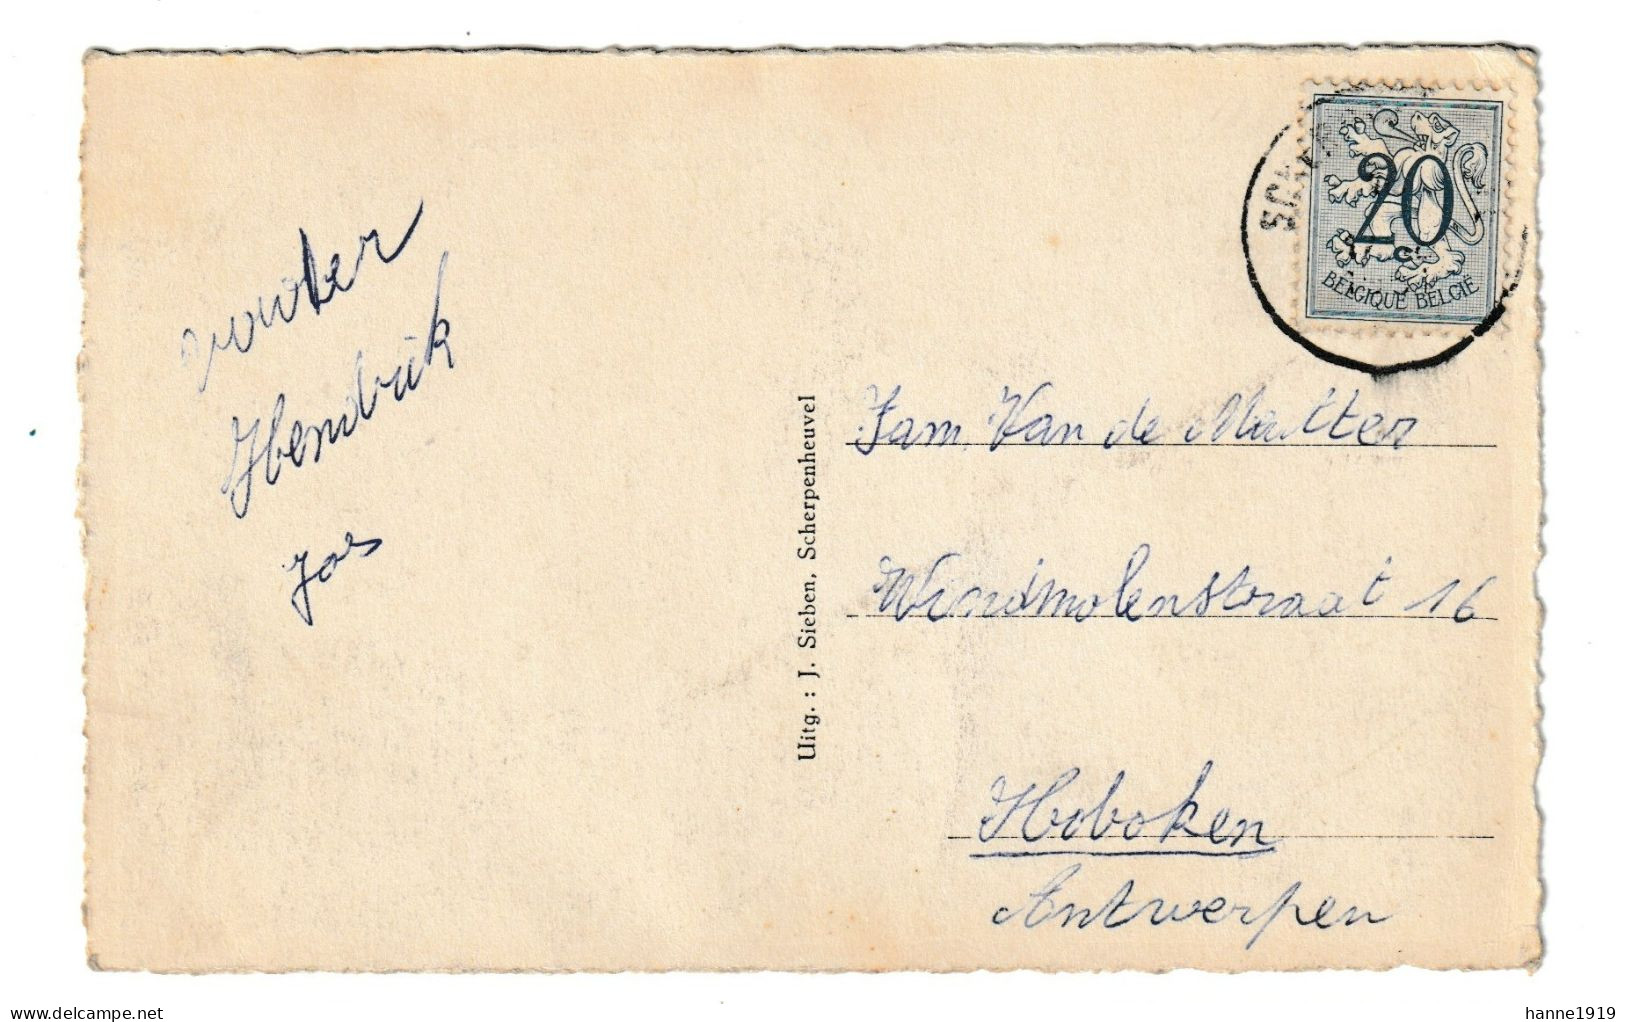 wouter
Hendrik
Jos
Uitg. : J. Sieben, Scherpenheuvel
20
c
BELGIQUE BELGIË
Fam. Van de Mutter
Windmolenstraat 16
Hoboken
Antwerpen
delcampe.net
hanne1919